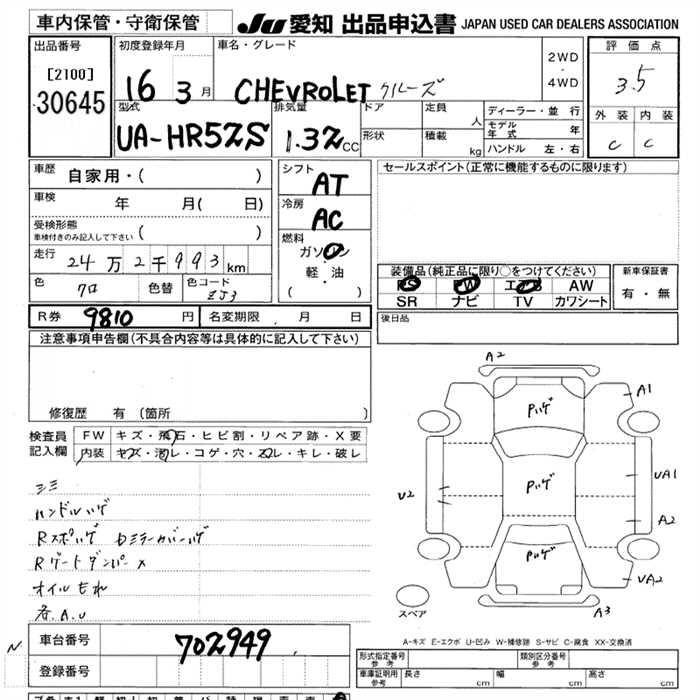 車内保管・守衛保管
JU 愛知 出品申込書 JAPAN USED CAR DEALERS ASSOCIATION
出品番号
[2100]
30645
初度登録年月
16 3 月
車名・グレード
CHEVROLET クルーズ
2WD
・
4WD
評価点
3.5
外装 内装
C C
型式
UA-HR52S
排気量
1.32 CC
ドア
形状
定員 人
積載 kg
ディーラー・並行
モデル年式 年
ハンドル 左・右
車歴 自家用・( )
車検 年 月( 日)
受検形態
車検付きのみ記入して下さい ( )
走行 24万2千993km
色 クロ 色替 色コード ZJ3
シフト AT
冷房 AC
燃料
ガソリン
軽・油
( )
セールスポイント(正常に機能するものに限ります)
装備品(純正品に限り○をつけてください)
PS PW エアB AW
SR ナビ TV カワシート
新車保証書
有・無
R券 9810 円 名変期限 . 月 日
後日品
注意事項申告欄(不具合内容等は具体的に記入して下さい)
修復歴 有 (箇所
検査員記入欄
FW キズ・飛石・ヒビ割・リペア跡・X要
内装 キズ・汚レ・コゲ・穴・スレ・キレ・破レ
ハンドルハゲ
Rゲートダンパー×
オイルもれ
各A.U
A2
A1
Pハゲ
Pハゲ
Pハゲ
U2
UA1
A2
UA2
A3
スペア
A-キズ E-エクボ U-凹み W-補修跡 S-サビ C-腐食 XX-交換済
車台番号 702949
登録番号
形式指定番号 参考
類別区分番号 参考
車庫証明用 参考
長さ cm 幅 cm 高さ cm